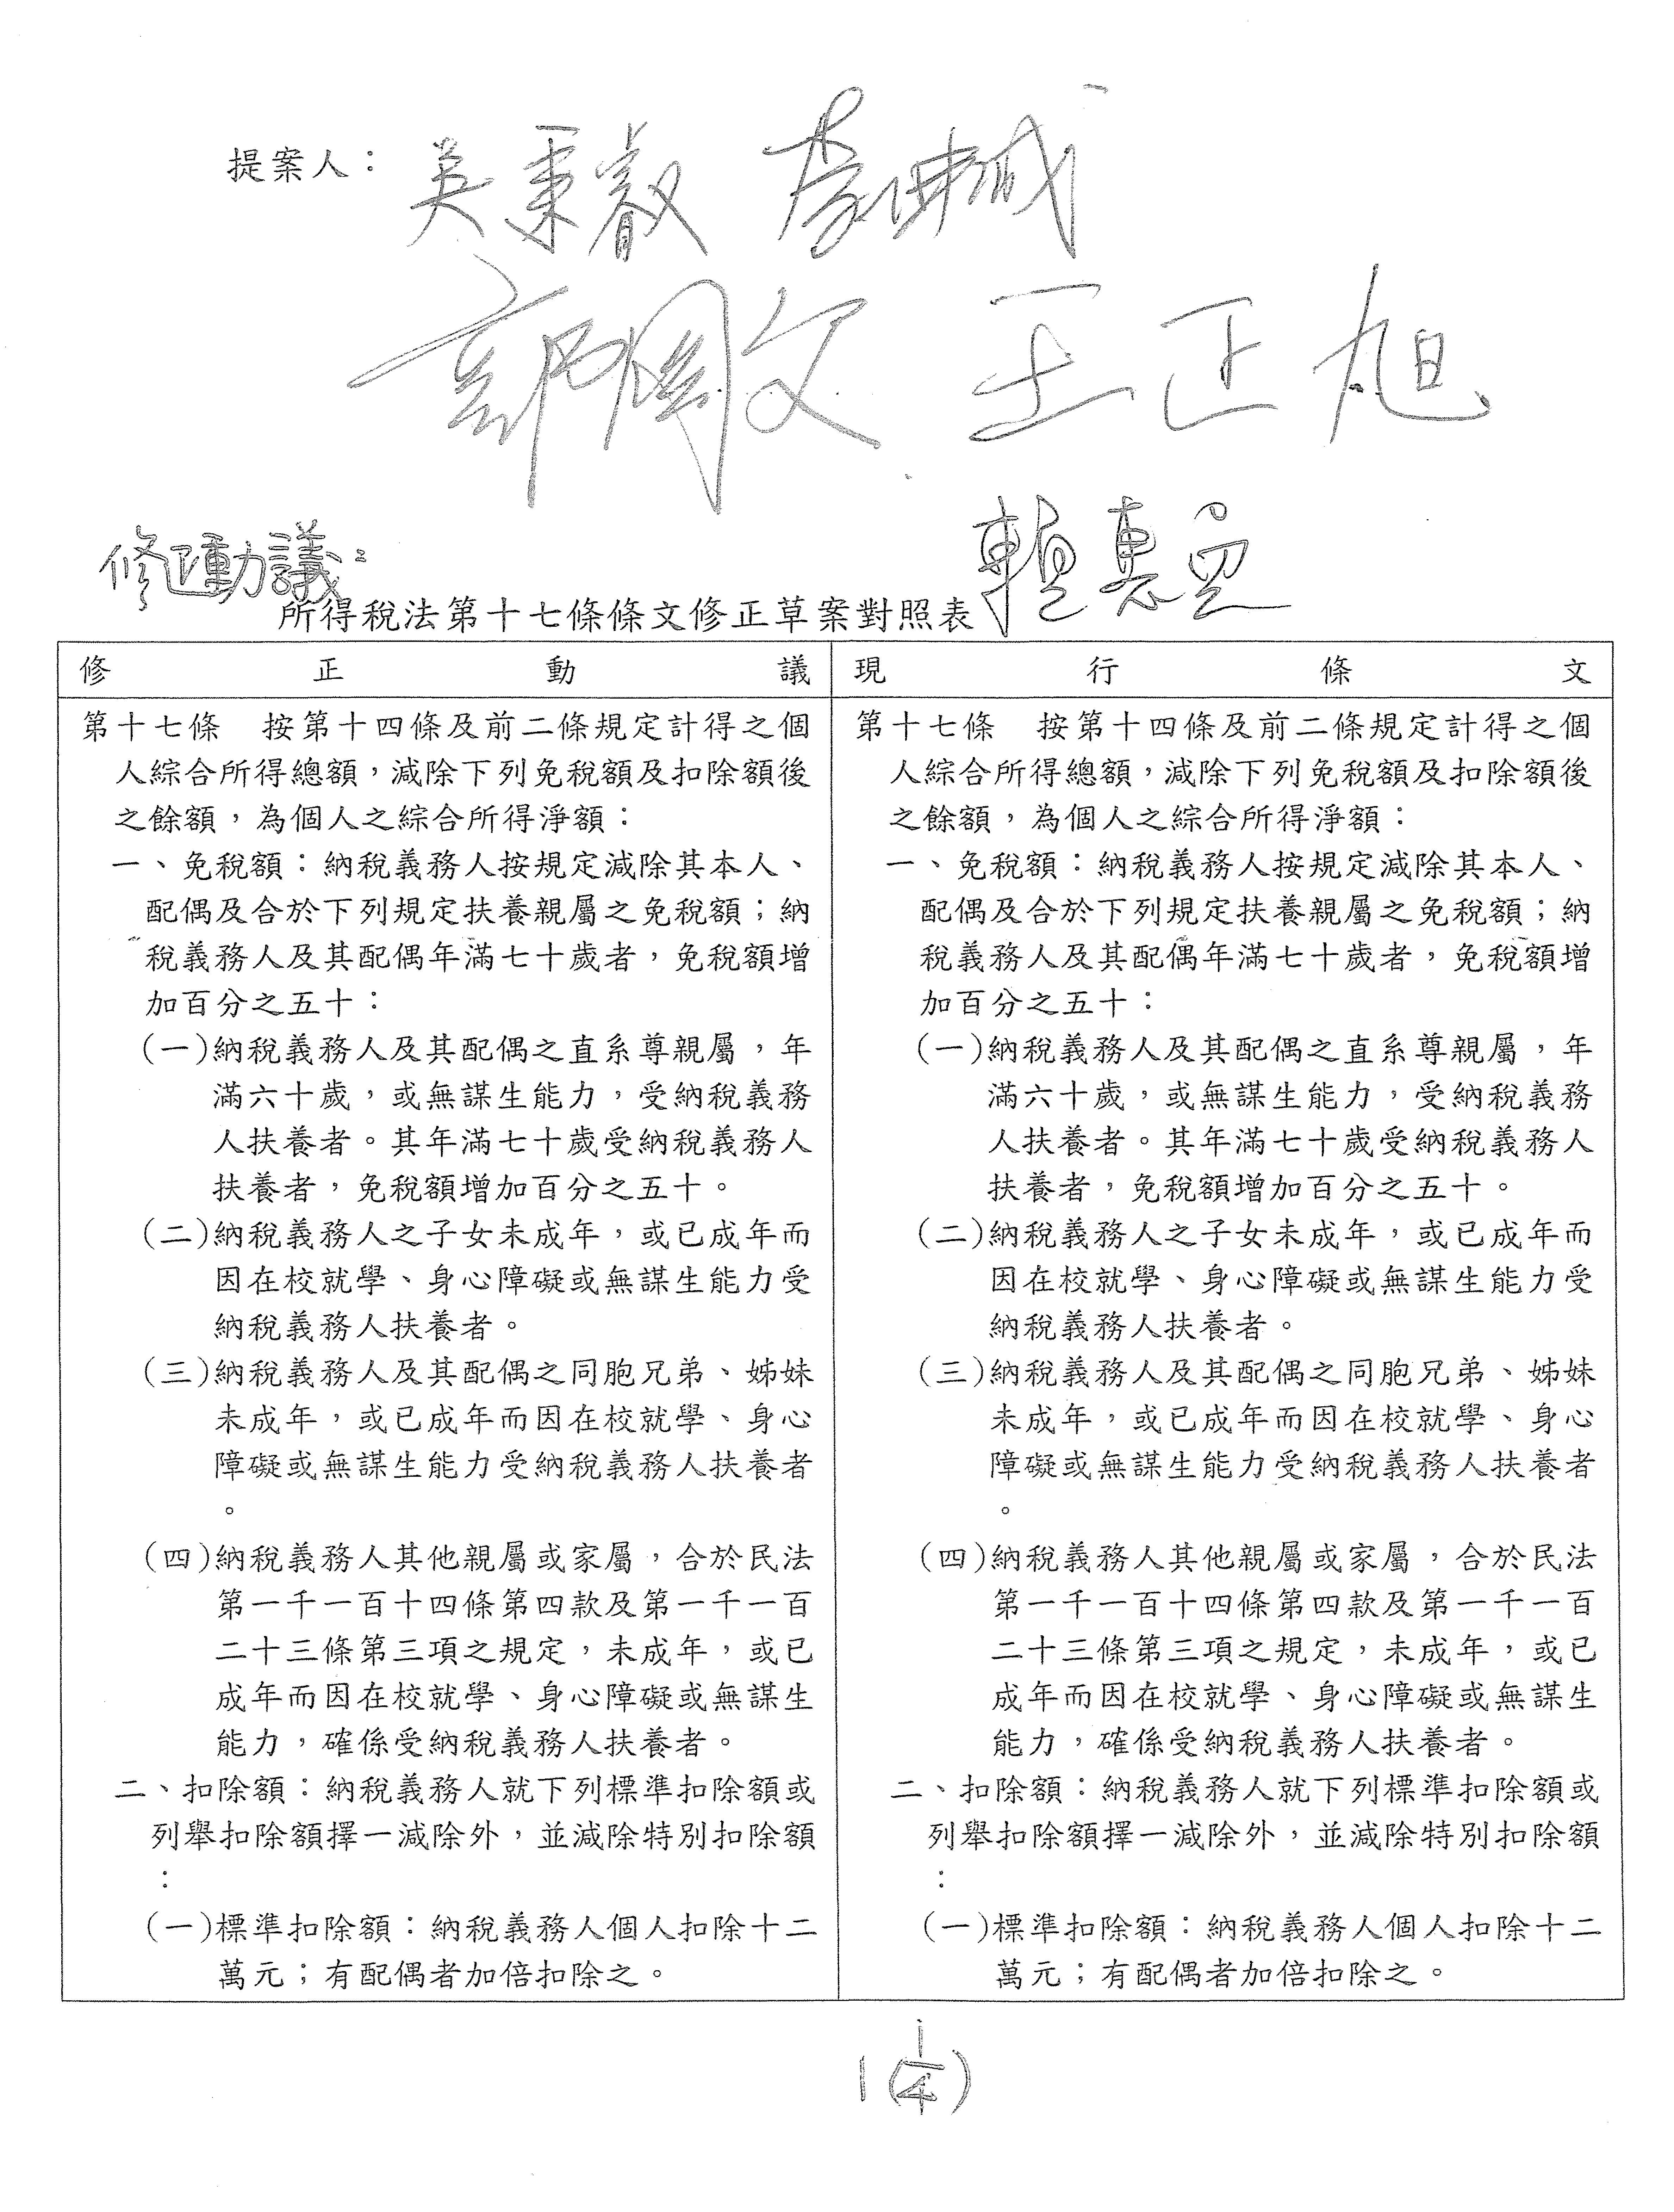 提案人：吳秉叡 李坤城
郭國文 王正旭
賴惠員
修正動議：
所得稅法第十七條條文修正草案對照表
修正動議
第十七條　按第十四條及前二條規定計得之個
人綜合所得總額，減除下列免稅額及扣除額後
之餘額，為個人之綜合所得淨額：
一、免稅額：納稅義務人按規定減除其本人、
配偶及合於下列規定扶養親屬之免稅額；納
稅義務人及其配偶年滿七十歲者，免稅額增
加百分之五十：
(一)納稅義務人及其配偶之直系尊親屬，年
滿六十歲，或無謀生能力，受納稅義務
人扶養者。其年滿七十歲受納稅義務人
扶養者，免稅額增加百分之五十。
(二)納稅義務人之子女未成年，或已成年而
因在校就學、身心障礙或無謀生能力受
納稅義務人扶養者。
(三)納稅義務人及其配偶之同胞兄弟、姊妹
未成年，或已成年而因在校就學、身心
障礙或無謀生能力受納稅義務人扶養者
。
(四)納稅義務人其他親屬或家屬，合於民法
第一千一百十四條第四款及第一千一百
二十三條第三項之規定，未成年，或已
成年而因在校就學、身心障礙或無謀生
能力，確係受納稅義務人扶養者。
二、扣除額：納稅義務人就下列標準扣除額或
列舉扣除額擇一減除外，並減除特別扣除額
：
(一)標準扣除額：納稅義務人個人扣除十二
萬元；有配偶者加倍扣除之。
現行條文
第十七條　按第十四條及前二條規定計得之個
人綜合所得總額，減除下列免稅額及扣除額後
之餘額，為個人之綜合所得淨額：
一、免稅額：納稅義務人按規定減除其本人、
配偶及合於下列規定扶養親屬之免稅額；納
稅義務人及其配偶年滿七十歲者，免稅額增
加百分之五十：
(一)納稅義務人及其配偶之直系尊親屬，年
滿六十歲，或無謀生能力，受納稅義務
人扶養者。其年滿七十歲受納稅義務人
扶養者，免稅額增加百分之五十。
(二)納稅義務人之子女未成年，或已成年而
因在校就學、身心障礙或無謀生能力受
納稅義務人扶養者。
(三)納稅義務人及其配偶之同胞兄弟、姊妹
未成年，或已成年而因在校就學、身心
障礙或無謀生能力受納稅義務人扶養者
。
(四)納稅義務人其他親屬或家屬，合於民法
第一千一百十四條第四款及第一千一百
二十三條第三項之規定，未成年，或已
成年而因在校就學、身心障礙或無謀生
能力，確係受納稅義務人扶養者。
二、扣除額：納稅義務人就下列標準扣除額或
列舉扣除額擇一減除外，並減除特別扣除額
：
(一)標準扣除額：納稅義務人個人扣除十二
萬元；有配偶者加倍扣除之。
1(1/4)